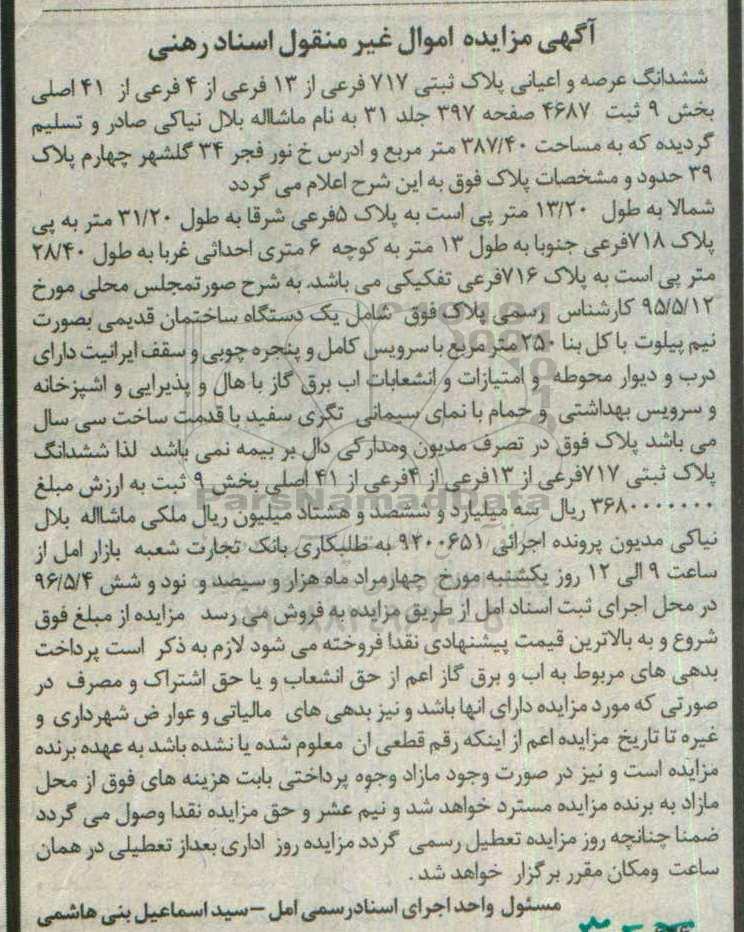 آگهی مزایده اموال غیر منقول اسناد رهنی
ششدانگ عرصه و اعیانی پلاک ثبتی ۷۱۷ فرعی از ۱۳ فرعی از ۴ فرعی از ۴۱ اصلی
بخش ۹ ثبت ۴۶۸۷ صفحه ۳۹۷ جلد ۳۱ به نام ماشااله بلال نیاکی صادر و تسلیم
گردیده که به مساحت ۳۸۷/۴۰ متر مربع و ادرس خ نور فجر ۳۴ گلشهر چهارم پلاک
۳۹ حدود و مشخصات پلاک فوق به این شرح اعلام می گردد
شمالا به طول ۱۳/۲۰ متر پی است به پلاک ۵فرعی شرقا به طول ۳۱/۲۰ متر به پی
پلاک ۷۱۸فرعی جنوبا به طول ۱۳ متر به کوچه ۶ متری احداثی غربا به طول ۲۸/۴۰
متر پی است به پلاک ۷۱۶فرعی تفکیکی می باشد. به شرح صورتمجلس محلی مورخ
۹۵/۵/۱۲ کارشناس رسمی پلاک فوق شامل یک دستگاه ساختمان قدیمی بصورت
نیم پیلوت با کل بنا ۲۵۰ متر مربع با سرویس کامل و پنجره چوبی و سقف ایرانیت دارای
درب و دیوار محوطه و امتیازات و انشعابات اب برق گاز با هال و پذیرایی و اشپزخانه
و سرویس بهداشتی و حمام با نمای سیمانی تگری سفید با قدمت ساخت سی سال
می باشد پلاک فوق در تصرف مدیون ومدارکی دال بر بیمه نمی باشد لذا ششدانگ
پلاک ثبتی ۷۱۷فرعی از ۱۳فرعی از ۴فرعی از ۴۱ اصلی بخش ۹ ثبت به ارزش مبلغ
۳۶۸۰۰۰۰۰۰۰ ریال سه میلیارد و ششصد و هشتاد میلیون ریال ملکی ماشااله بلال
نیاکی مدیون پرونده اجرائی ۹۲۰۰۶۵۱ به طلبکاری بانک تجارت شعبه بازار امل از
ساعت ۹ الی ۱۲ روز یکشنبه مورخ چهارمراد ماه هزار و سیصد و نود و شش ۹۶/۵/۴
در محل اجرای ثبت اسناد امل از طریق مزایده به فروش می رسد مزایده از مبلغ فوق
شروع و به بالاترین قیمت پیشنهادی نقدا فروخته می شود لازم به ذکر است پرداخت
بدهی های مربوط به اب و برق گاز اعم از حق انشعاب و یا حق اشتراک و مصرف در
صورتی که مورد مزایده دارای انها باشد و نیز بدهی های مالیاتی و عوار ض شهرداری و
غیره تا تاریخ مزایده اعم از اینکه رقم قطعی ان معلوم شده یا نشده باشد به عهده برنده
مزایده است و نیز در صورت وجود مازاد وجوه پرداختی بابت هزینه های فوق از محل
مازاد به برنده مزایده مسترد خواهد شد و نیم عشر و حق مزایده نقدا وصول می گردد
ضمنا چنانچه روز مزایده تعطیل رسمی گردد مزایده روز اداری بعداز تعطیلی در همان
ساعت ومکان مقرر برگزار خواهد شد .
مسئول واحد اجرای اسنادرسمی امل –سید اسماعیل بنی هاشمی
ParsNamadData